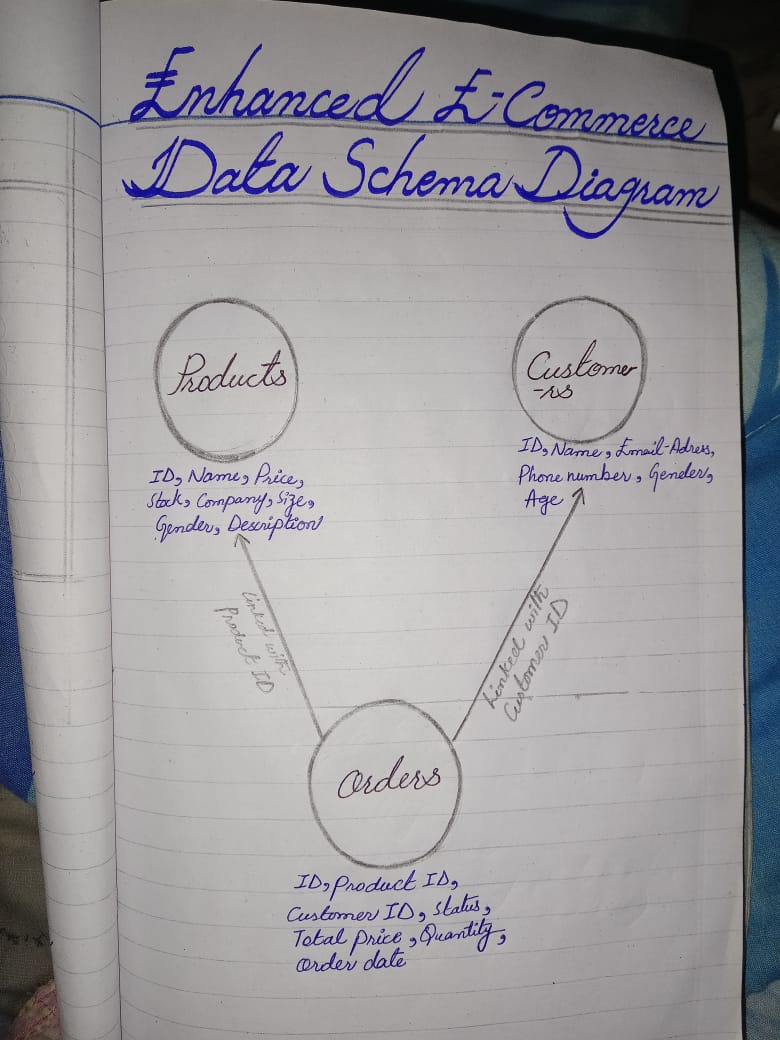 Enhanced E-Commerce
Data Schema Diagram
Products
ID, Name, Price,
Stock, Company, Size,
Gender, Description
Customer
-rs
ID, Name, Email-Adress,
Phone number, Gender,
Age
Linked with
Product ID
Linked with
Customer ID
Orders
ID, Product ID,
Customer ID, Status,
Total Price, Quantity,
Order date